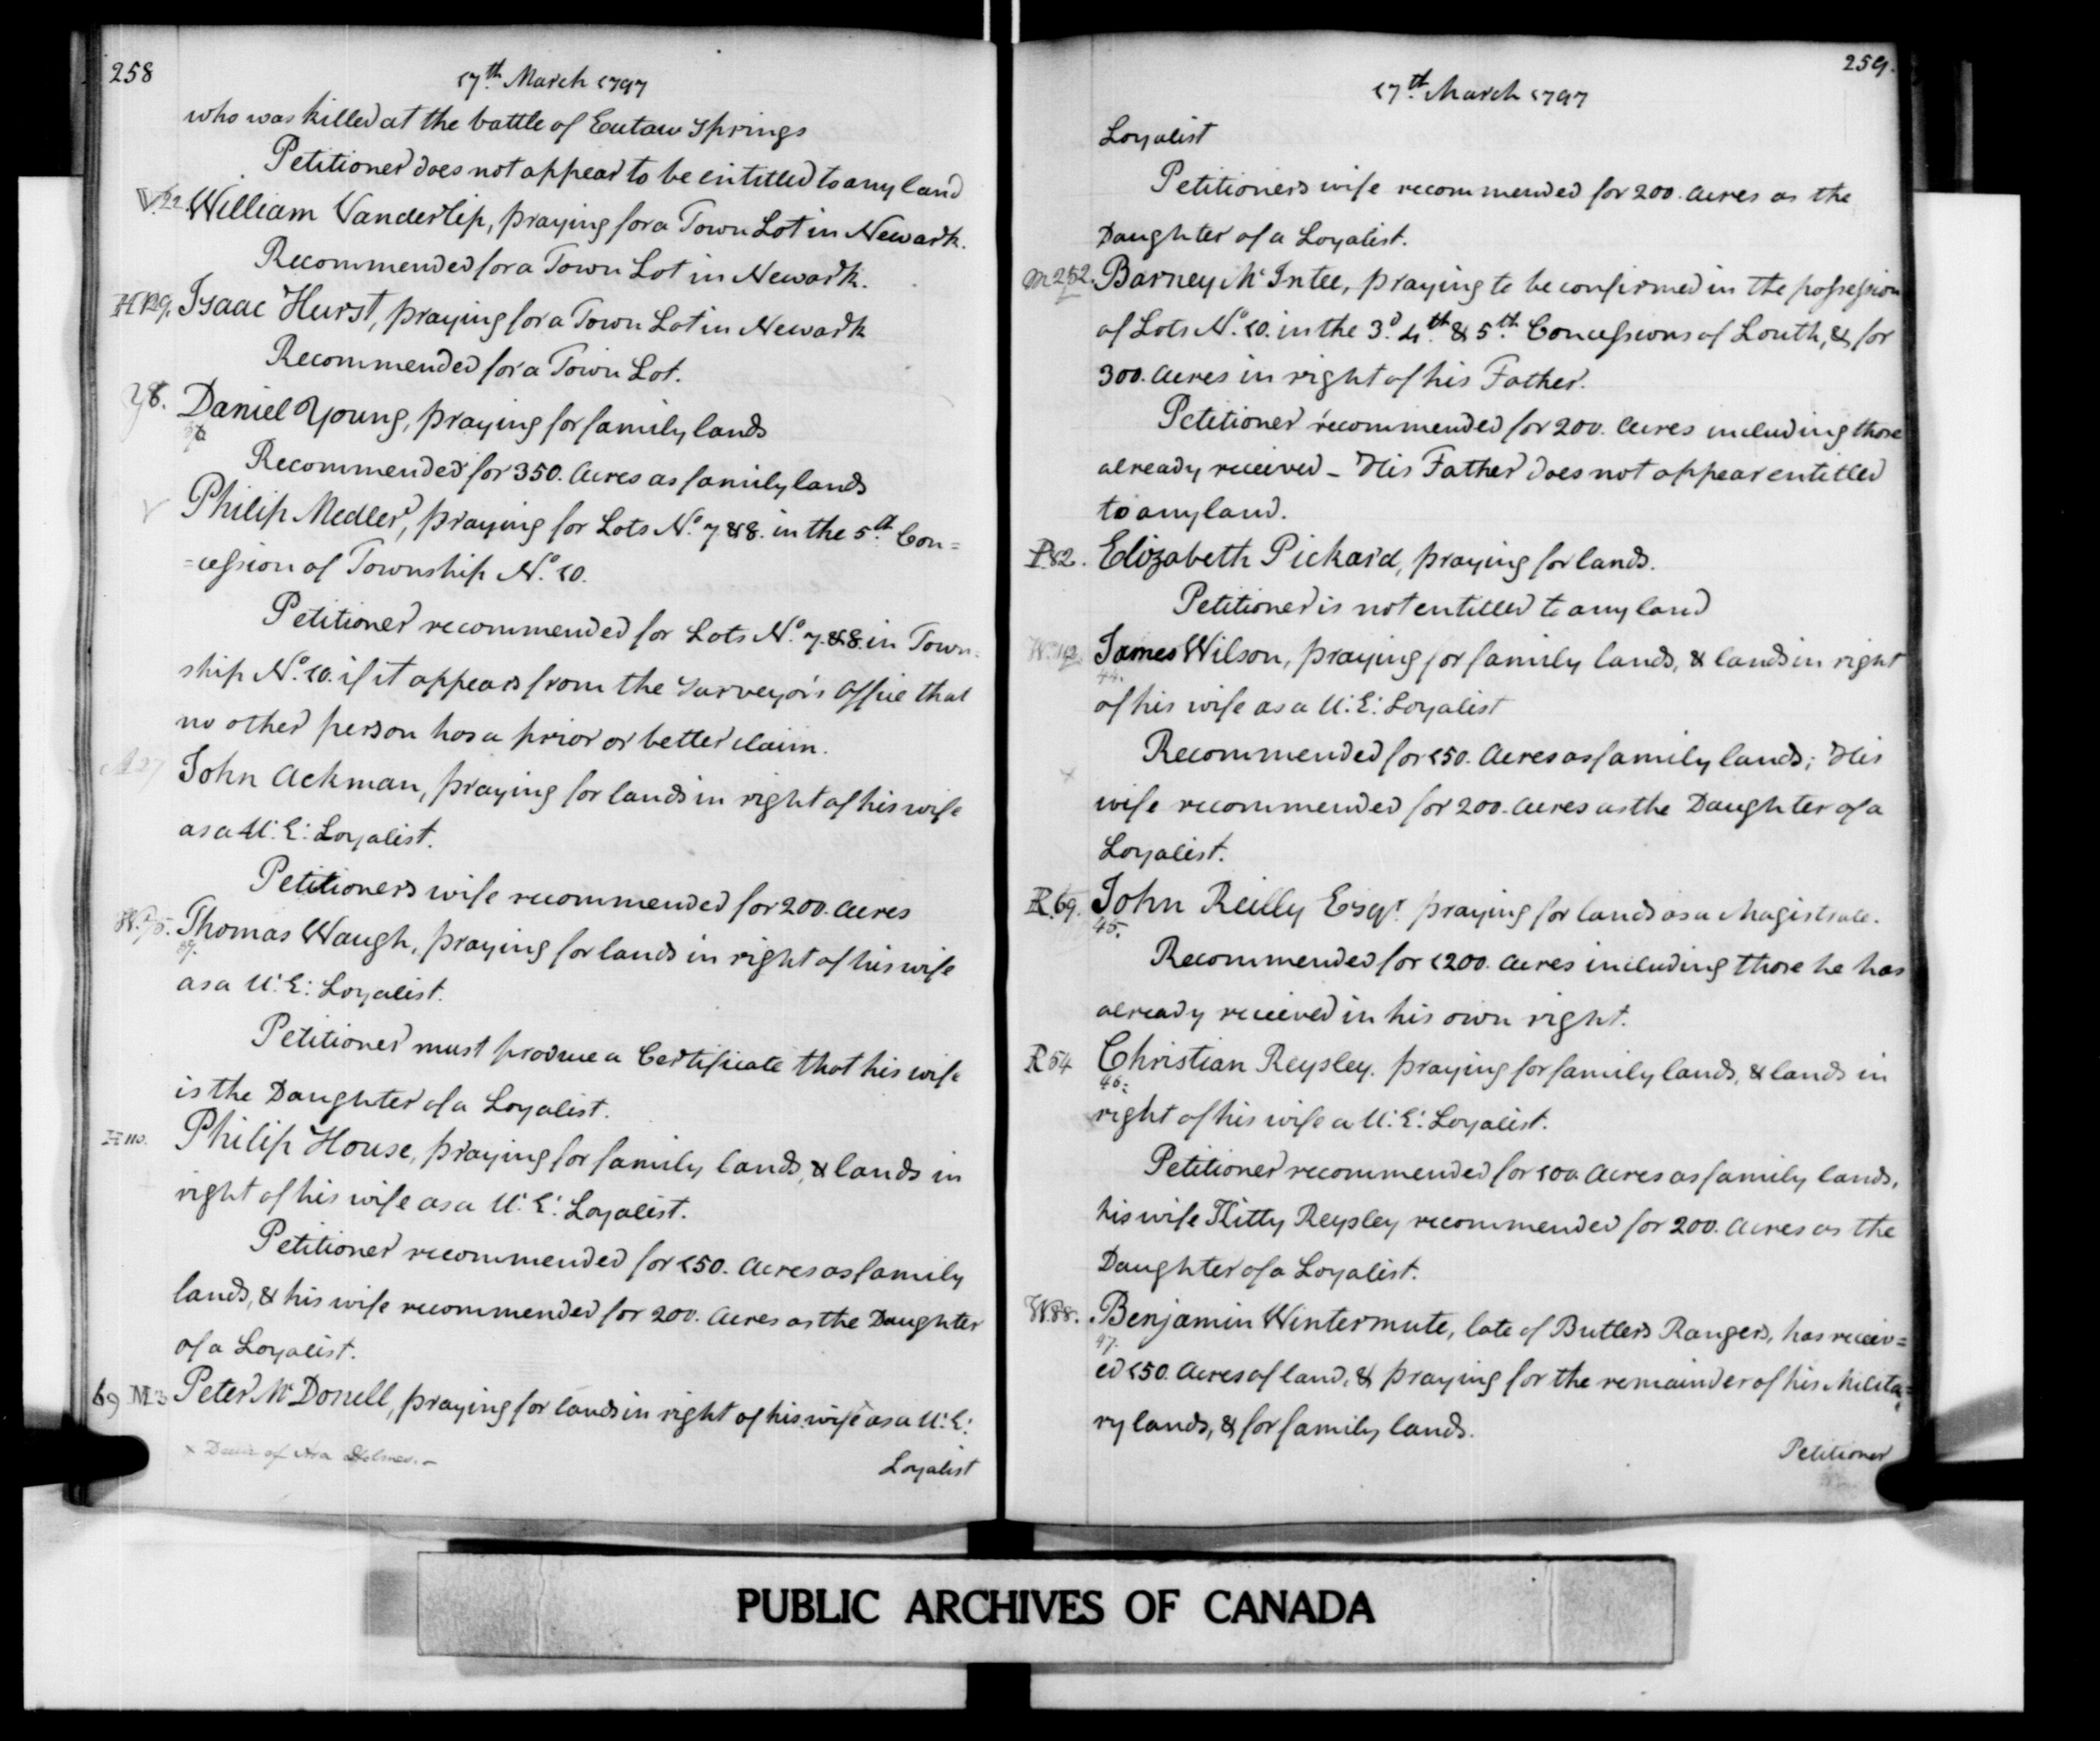 258
17th. March 1797
who was killed at the battle of Eutaw Springs
Petitioner does not appear to be entitled to any land
V.22. William Vanderlip, praying for a Town Lot in Newark.
Recommended for a Town Lot in Newark.
H129. Isaac Hurst, praying for a Town Lot in Newark
Recommended for a Town Lot.
Y8. Daniel Young, praying for family lands
Recommended for 350. Acres as family lands
Philip Medler, praying for Lots No. 7. & 8. in the 5th. Con=
=cession of Township No. 10.
Petitioner recommended for Lots No. 7. & 8. in Town-
ship No. 10. if it appears from the Surveyor's Office that
no other person has a prior or better claim.
A 27 John Ackman, praying for lands in right of his wife
as a U: E: Loyalist.
Petitioners wife recommended for 200. Acres
W.75. Thomas Waugh, praying for lands in right of his wife
as a U: E: Loyalist.
Petitioner must produce a Certificate that his wife
is the Daughter of a Loyalist.
H 110. Philip House, praying for family lands, & lands in
right of his wife as a U: E: Loyalist.
Petitioner recommended for 150. Acres as family
lands, & his wife recommended for 200. Acres as the Daughter
of a Loyalist.
69 M3 Peter Mc Donell, praying for lands in right of his wife as a U: E:
x of
Loyalist
259.
17th. March 1797
Loyalist
Petitioners wife recommended for 200. Acres as the
Daughter of a Loyalist.
M252. Barney Mc Intee, praying to be confirmed in the possession
of Lots No. 10. in the 3d. 4th. & 5th. Concessions of Louth, & for
300. Acres in right of his Father.
Petitioner recommended for 200. Acres including those
already received - His Father does not appear entitled
to any land.
P.82. Elizabeth Pickard, praying for lands.
Petitioner is not entitled to any land
W.112. James Wilson, praying for family lands, & lands in right
44.
of his wife as a U: E: Loyalist
Recommended for 150. Acres as family lands; His
x
wife recommended for 200. Acres as the Daughter of a
Loyalist.
R.69. John Reilly Esqr. praying for lands as a Magistrate.
45.
Recommended for 1200. Acres including those he has
already received in his own right.
R 54 Christian Reysley. praying for family lands, & lands in
46.
right of his wife a U: E: Loyalist.
Petitioner recommended for 100. Acres as family lands,
his wife Kitty Reysley recommended for 200. Acres as the
Daughter of a Loyalist.
W88. Benjamin Wintermute, late of Butlers Rangers, has receiv=
47.
ed 150. Acres of land, & praying for the remainder of his Milita=
ry lands, & for family lands.
Petitioner
PUBLIC ARCHIVES OF CANADA